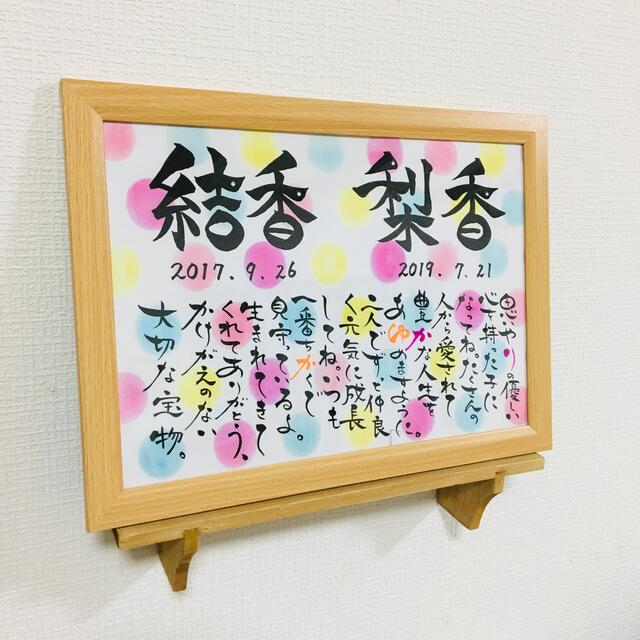 結香 梨香
2017.9.26 2019.7.21
思いやりの優しい
心を持った子に
なってね。たくさんの
人から愛されて
豊かな人生を
あゆめますように。
二人でずっと仲良
く元気に成長
してね。いつも
一番ちかくで
見守っているよ。
生まれてきて
くれてありがとう、
かけがえのない
大切な宝物。